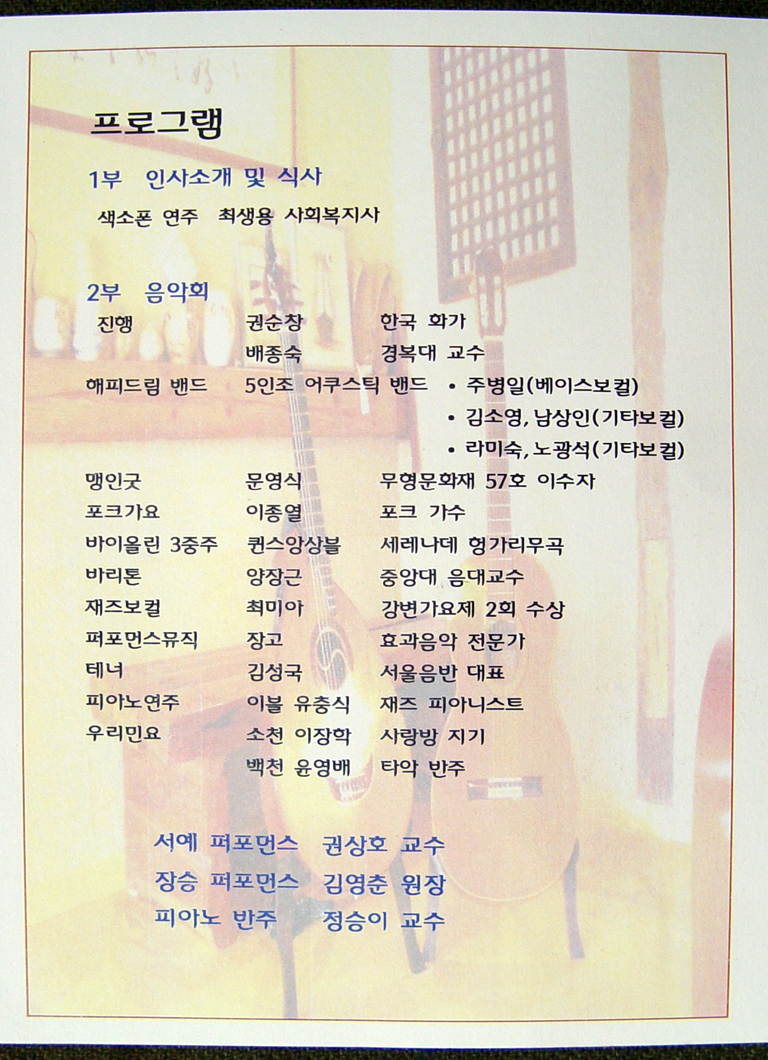 프로그램
1부 인사소개 및 식사
색소폰 연주 최생용 사회복지사
2부 음악회
진행 권순창 한국 화가
배종숙 경복대 교수
해피드림 밴드 5인조 어쿠스틱 밴드 • 주병일(베이스보컬)
• 김소영,남상인(기타보컬)
• 라미숙,노광석(기타보컬)
맹인굿 문영식 무형문화재 57호 이수자
포크가요 이종열 포크 가수
바이올린 3중주 퀸스앙상블 세레나데 헝가리무곡
바리톤 양장근 중앙대 음대교수
재즈보컬 최미아 강변가요제 2회 수상
퍼포먼스뮤직 장고 효과음악 전문가
테너 김성국 서울음반 대표
피아노연주 이블 유충식 재즈 피아니스트
우리민요 소천 이장학 사랑방 지기
백천 윤영배 타악 반주
서예 퍼포먼스 권상호 교수
장승 퍼포먼스 김영춘 원장
피아노 반주 정승이 교수